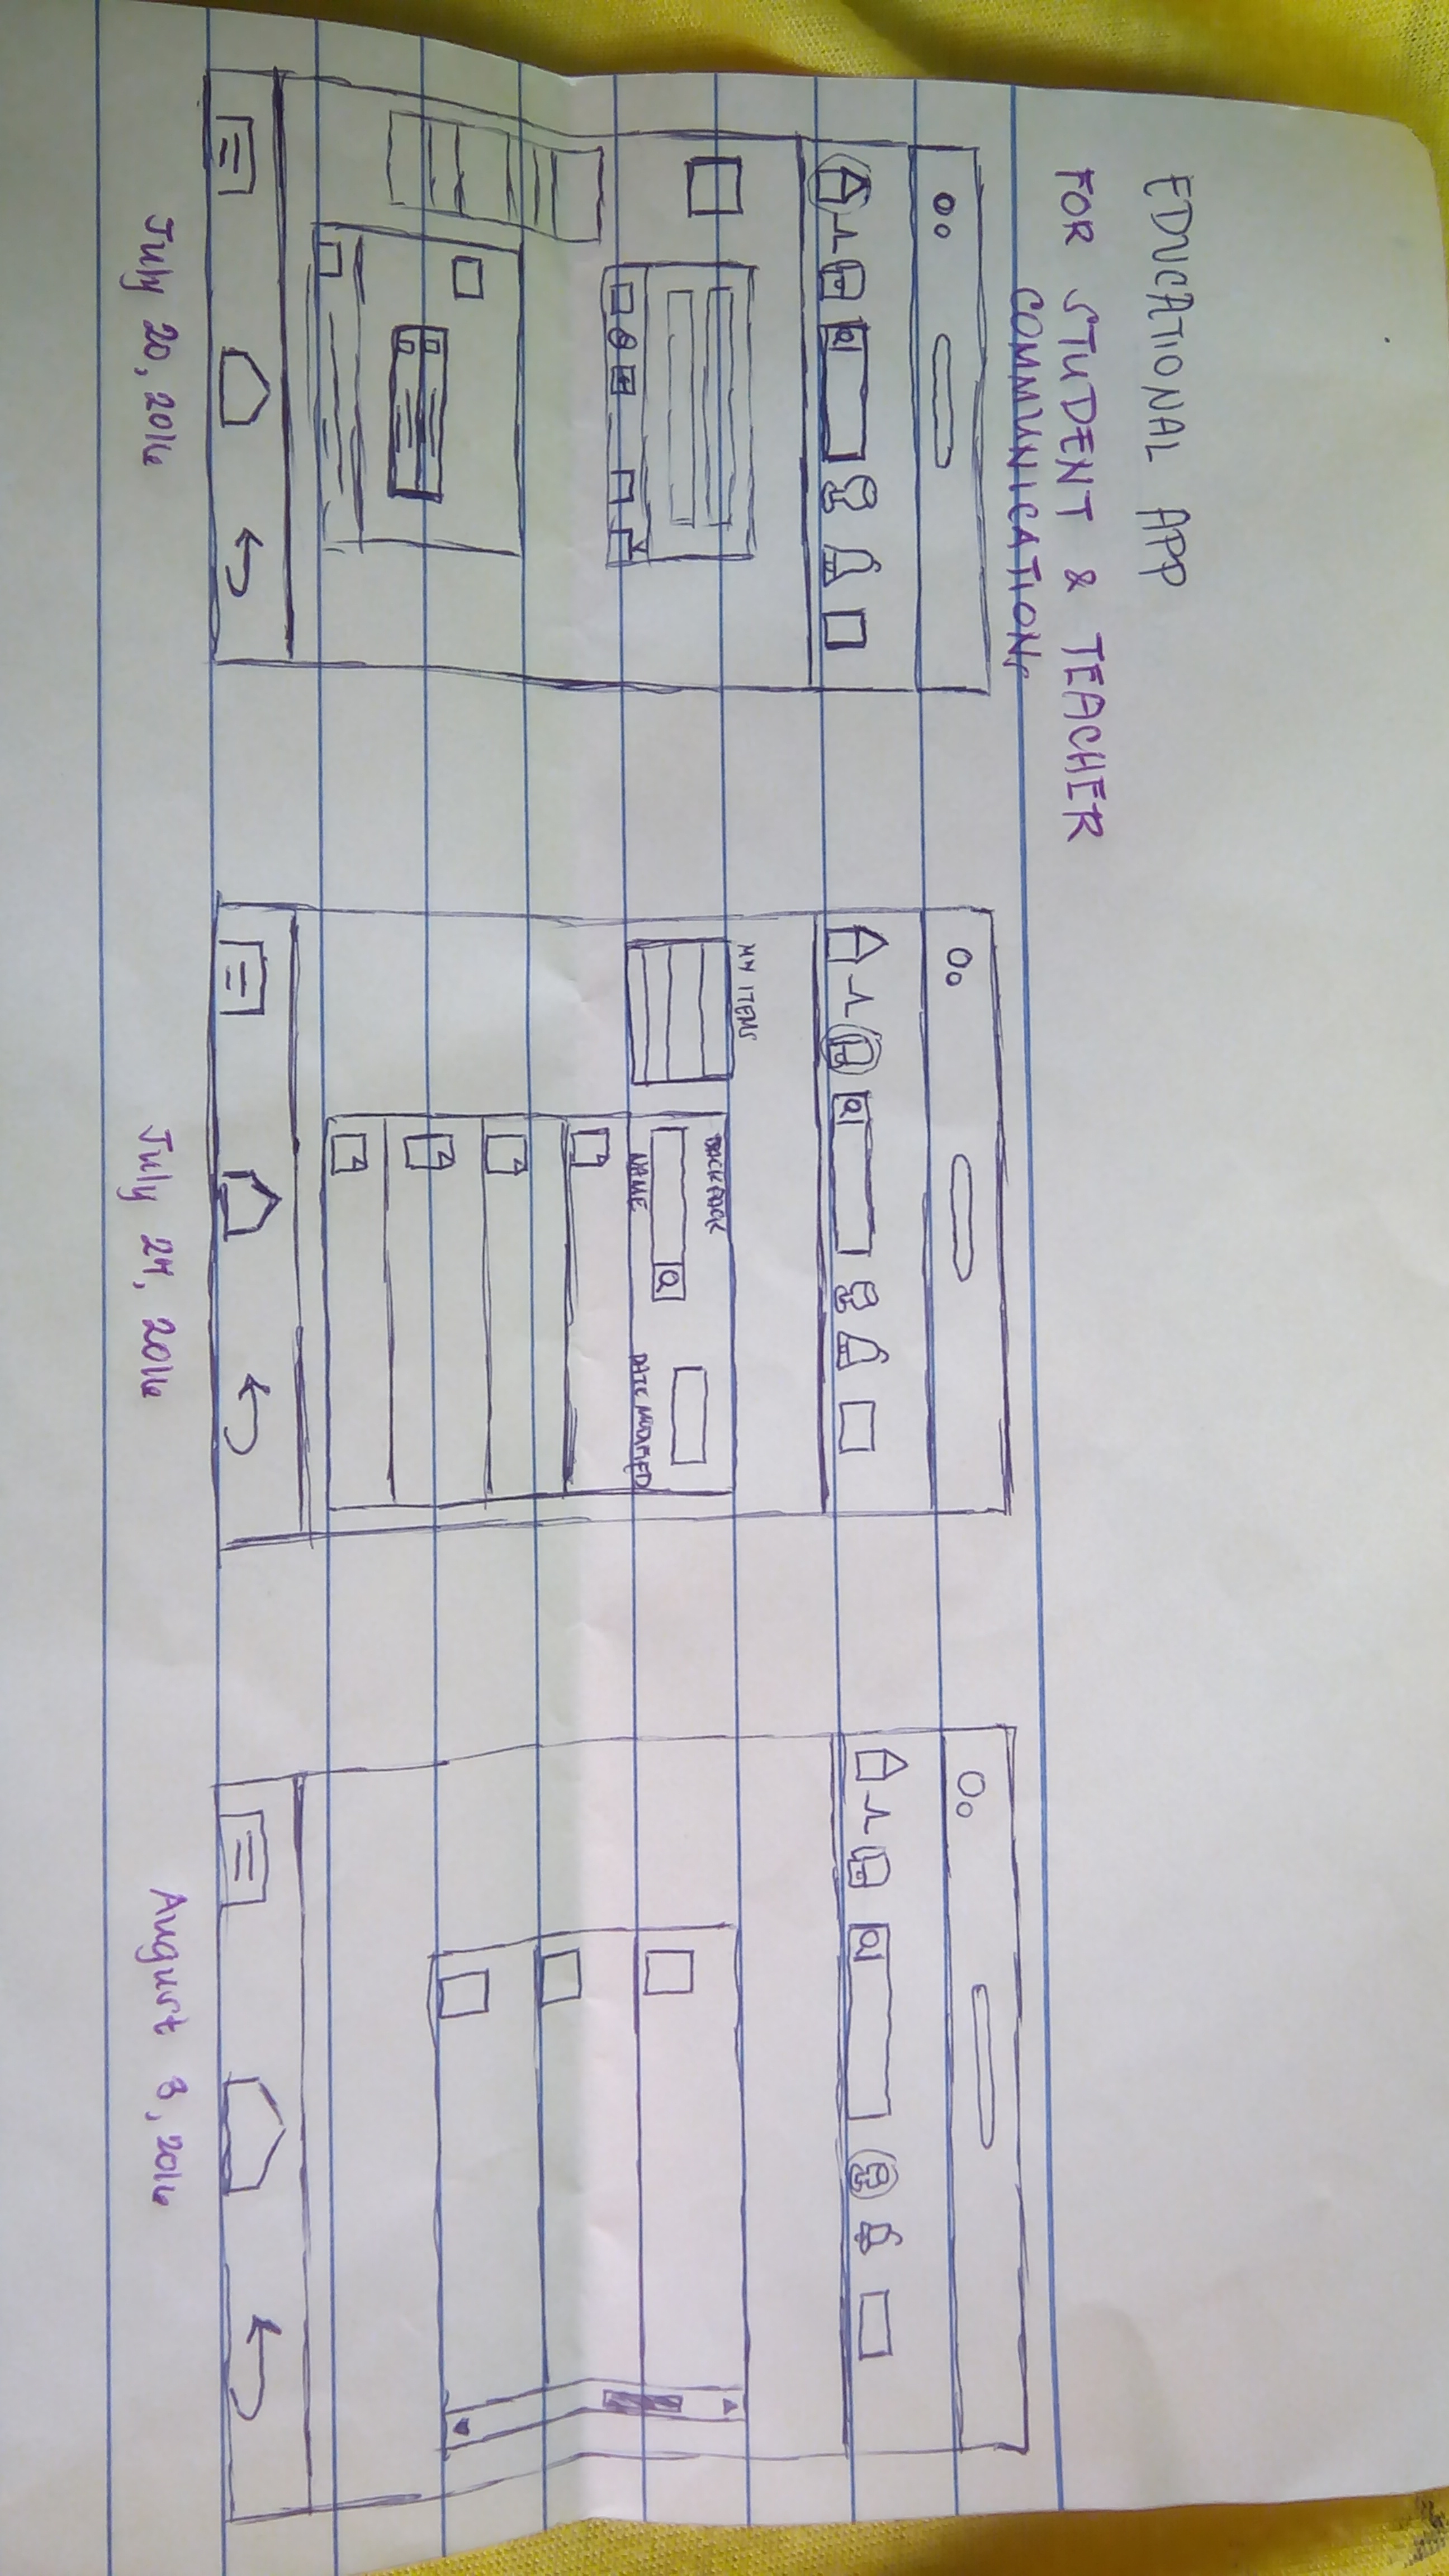 EDUCATIONAL APP
FOR STUDENT & TEACHER
COMMUNICATION
MY ITEMS
BACKPACK
NAME
DATE MODIFIED
July 20, 2016
July 24, 2016
August 3, 2016